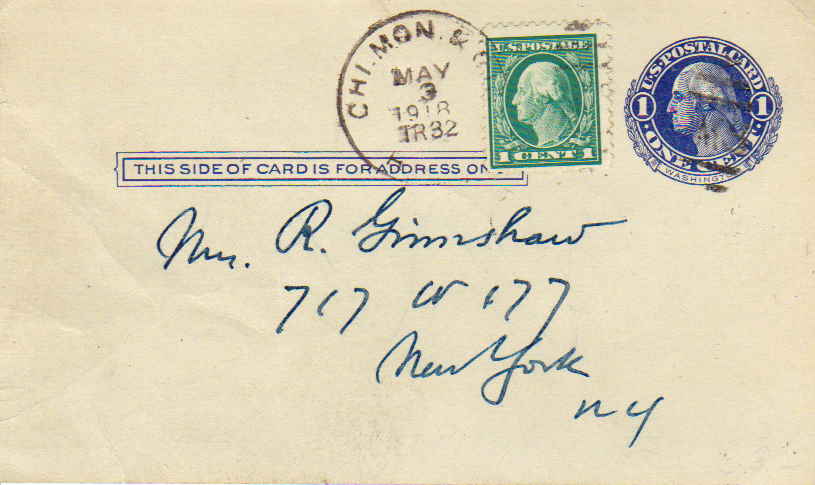 CHI. MON. &
MAY
3
1918
TR32
U.S. POSTAGE
1 CENT 1
U.S. POSTAL CARD
1 1
ONE CENT
WASHINGTON
THIS SIDE OF CARD IS FOR ADDRESS ON
Mr. R. Grimshaw
717 W 177
New York
NY